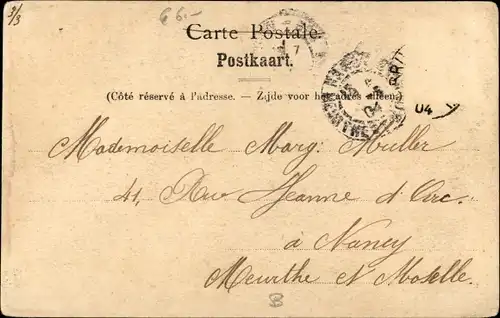 3/3
66.-
Carte Postale.
Postkaart.
(Côté réservé à l'adresse. — Zijde voor het adres alleen)
04
Mademoiselle Marg: Muller
41, Rue Jeanne d'Arc.
à Nancy
Meurthe et Moselle.